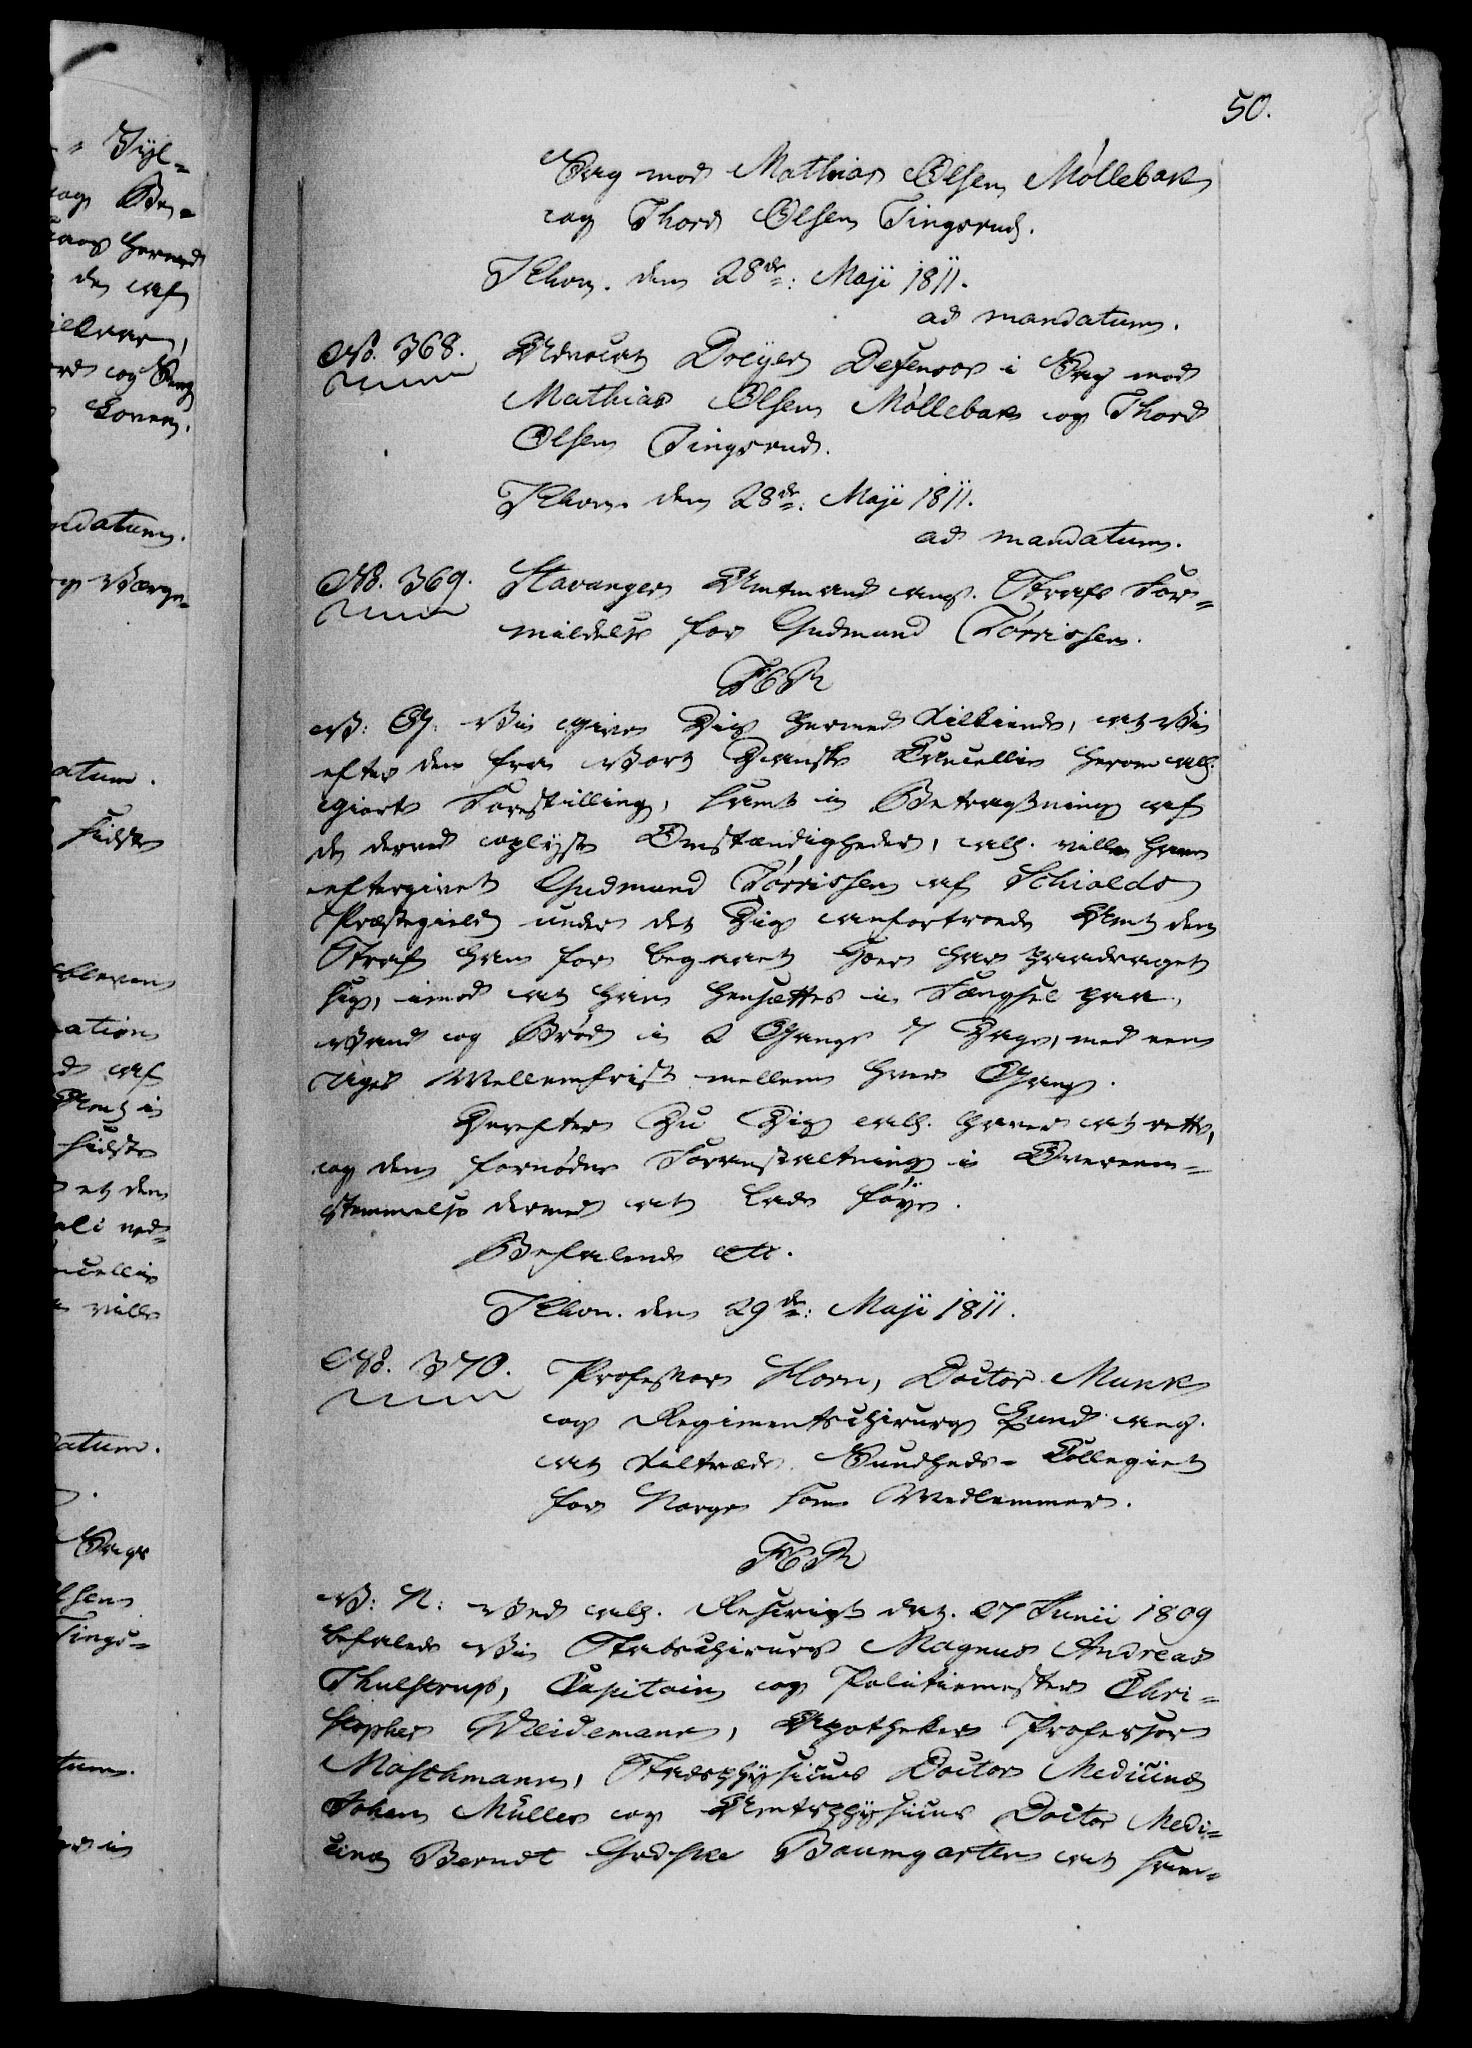 50.
Sag mod Mathias Olsen Møllebak
og Thord Olsen Tingsrud.
Khvn. den 28de: Maji 1811.
ad mandatum.
No. 368. Advocat Dreyer Defensor i Sag mod
Mathias Olsen Møllebak og Thord
Olsen Tingsrud.
Khvn. den 28de: Maji 1811.
ad mandatum.
No. 369. Stavanger Amtmand ang. Straf For=
mildelse for Gudmund Tørrissen.
F6R
V: G: Vi give Dig hermed tilkiende, at Vi
efter den fra Vort Danske Cancellie herom all.
giorte Forestilling, samt i Betragtning af
de derved oplyste Omstændigheder, all. ville have
eftergivet Gudmund Tørrissen af Schiolds
Præstegield under det Dig anfortroede Amt den
Straf han for begaaet Hoer har paadraget
sig, imod at han hensættes i Fængsel paa
Vand og Brød i 2 Gange 7 Dage, med een
Uges Mellemfrist mellem hver Gang.
Derefter Du Dig all. haver at rette,
og den fornødne Foranstaltning i Overeens=
stemmelse dermed at lade føye.
Befalende etc.
Khvn. den 29de: Maji 1811.
No. 370. Professor Horn, Doctor Munk
og Regimentschirurg Lund ang.
at tiltræde Sundheds=Collegiet
for Norge som Medlemmer.
F6R
V: N: Ved all. Rescript dat. 27 Junii 1809
befalede Vi Stabschirurg Magnus Andreas
Thulstrup, Capitain og Politiemester Chri=
stopher Weidemann, Apotheker Professor
Maschmann, Stadsphysicus Doctor Medicinæ
Johan Müller og Amtsphysicus Doctor Medi=
cinæ Berndt Godske Baumgarten at sam=